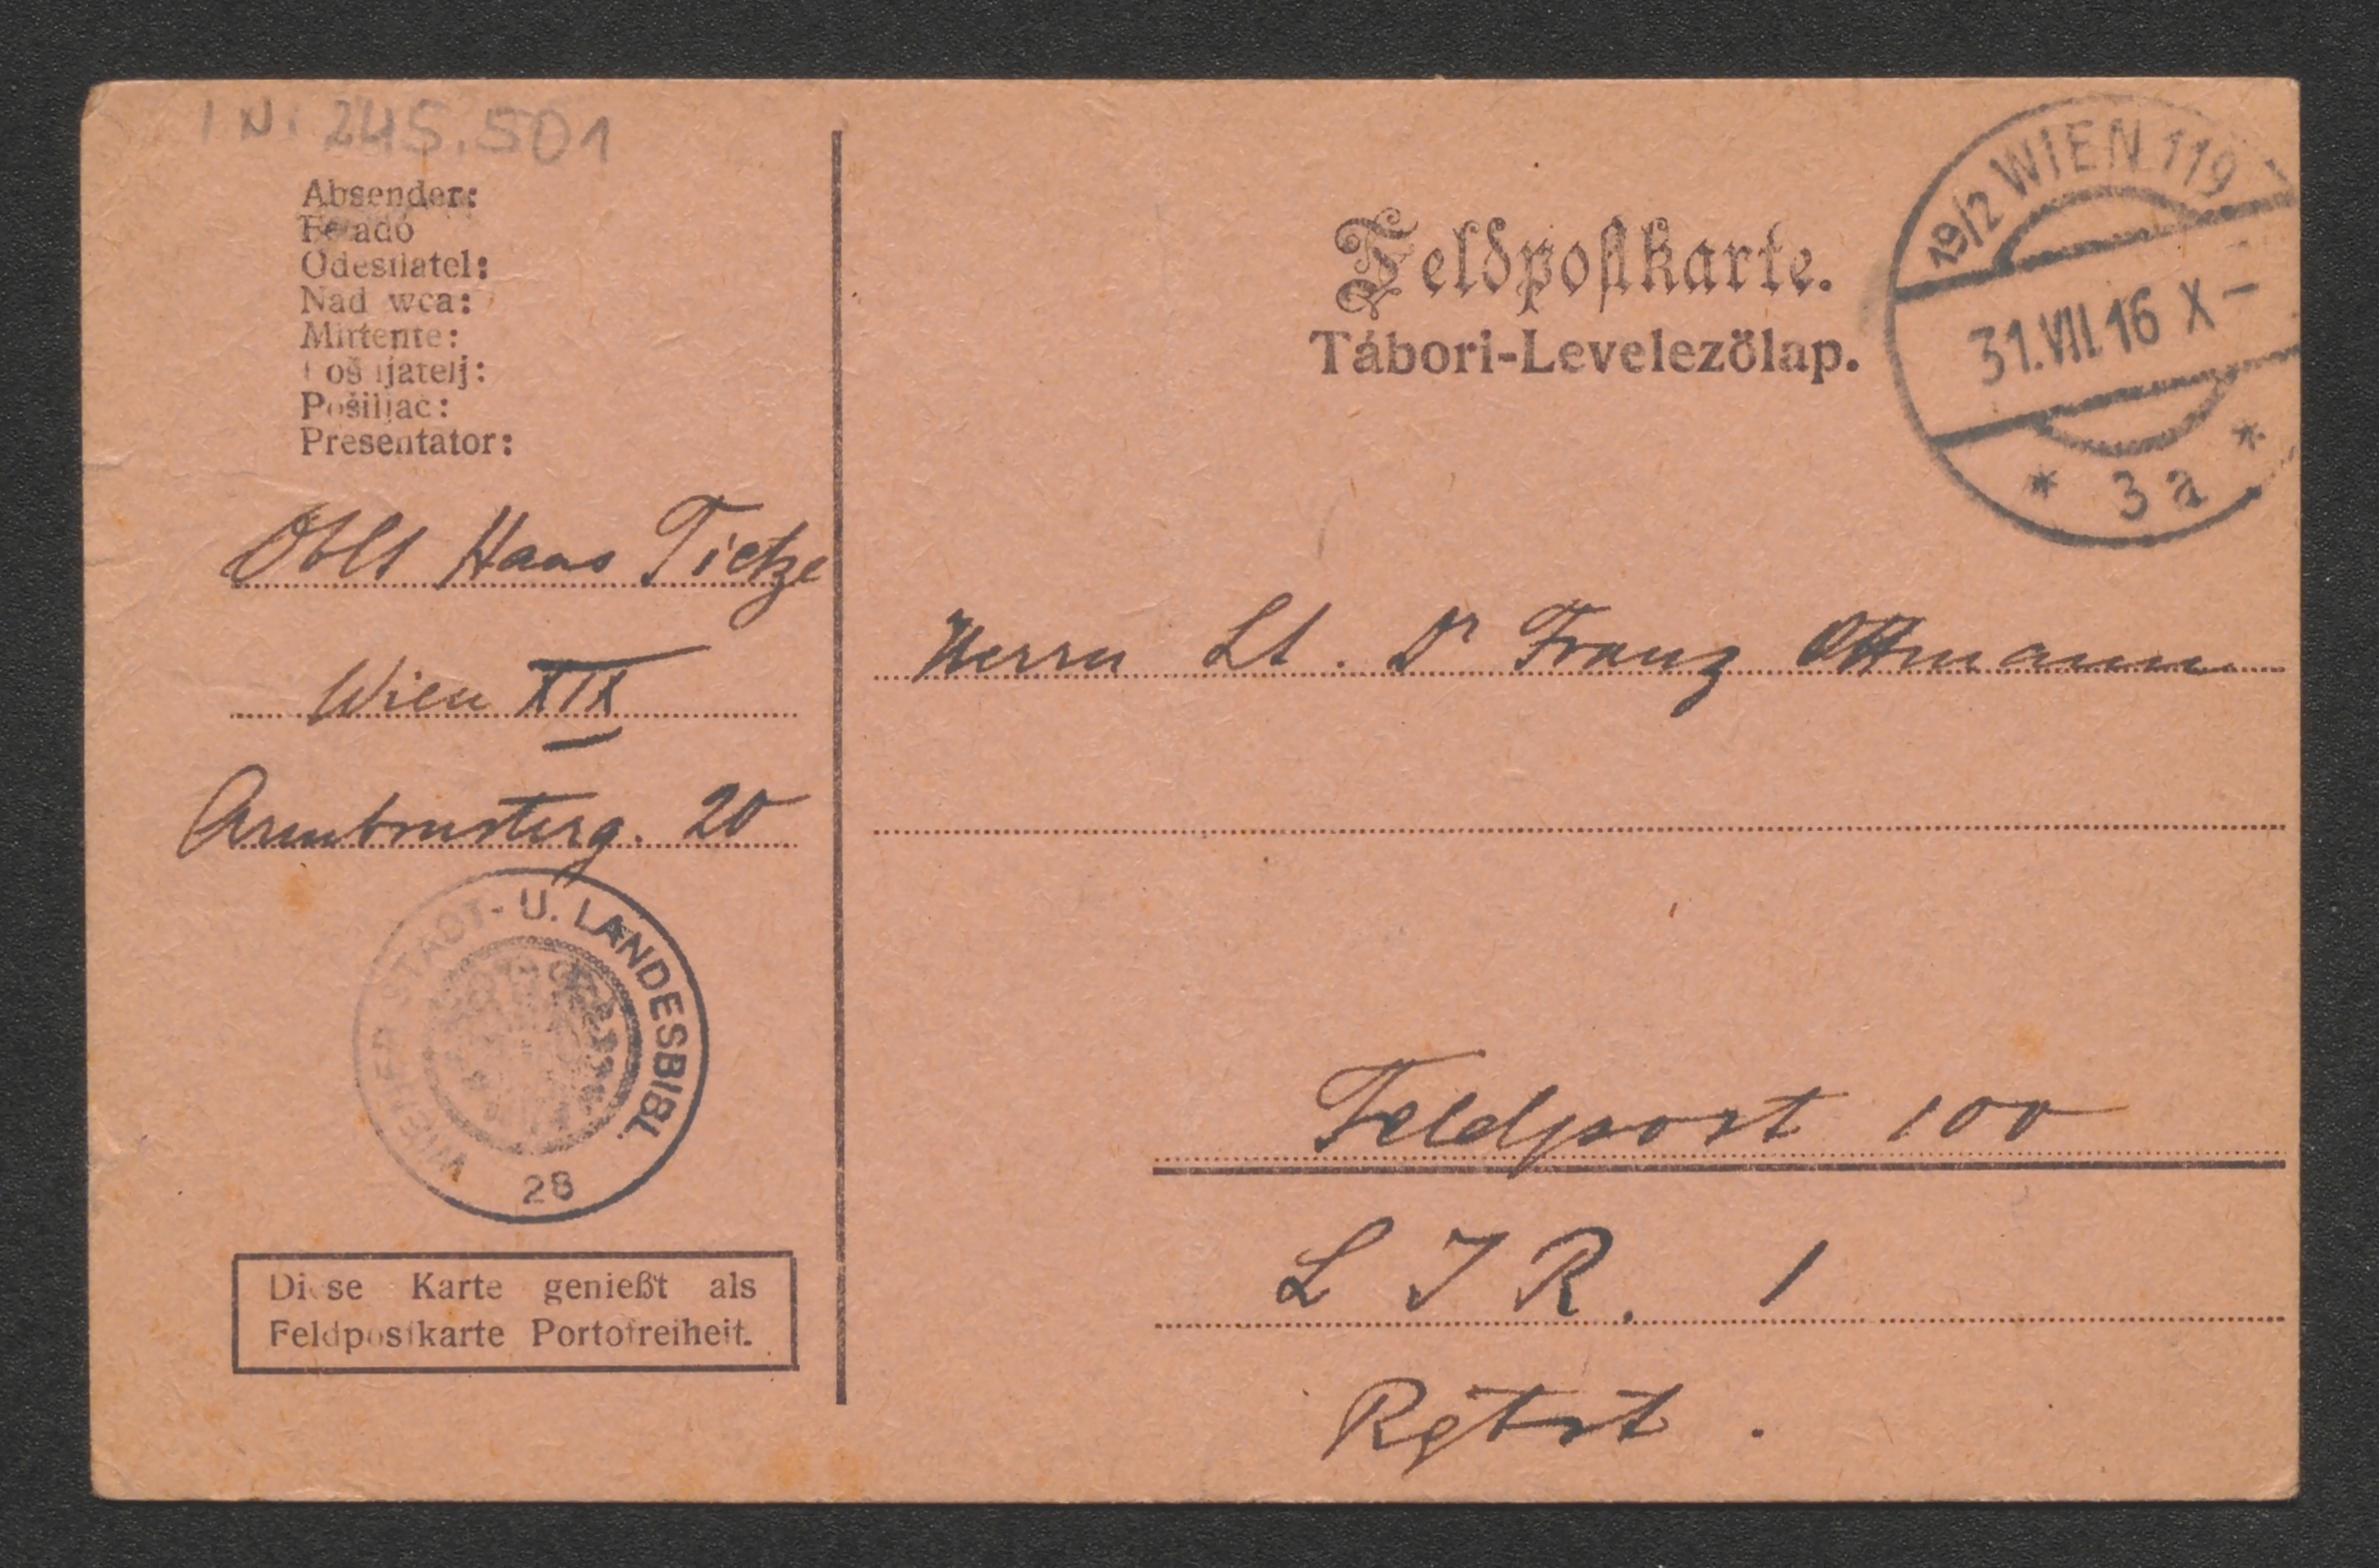 I N. 245.501
Absender:
Feladó
Odesílatel:
Nadawca:
Mittente:
Pošiljatelj:
Pošiljač:
Presentator:
Oblt Hans Tietze
Wien XIX
Armbrusterg. 20
WIENER STADT- U. LANDESBIBL.
28
Diese Karte genießt als
Feldpostkarte Portofreiheit.
Feldpostkarte.
Tábori-Levelezölap.
19/2 WIEN 119
31.VII.16 X-
* 3a *
Herrn Lt. Dr Franz Ottmann
Feldpost 100
L I R. 1